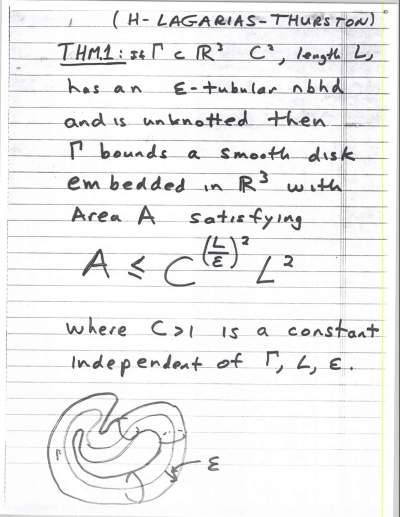 (H-LAGARIAS-THURSTON)
THM1: If Γ ⊂ ℝ³ C², length L,
has an ε-tubular nbhd
and is unknotted then
Γ bounds a smooth disk
embedded in ℝ³ with
Area A satisfying
A ≤ C^(L/ε)² L²
where C>1 is a constant
independent of Γ, L, ε.
Γ
ε